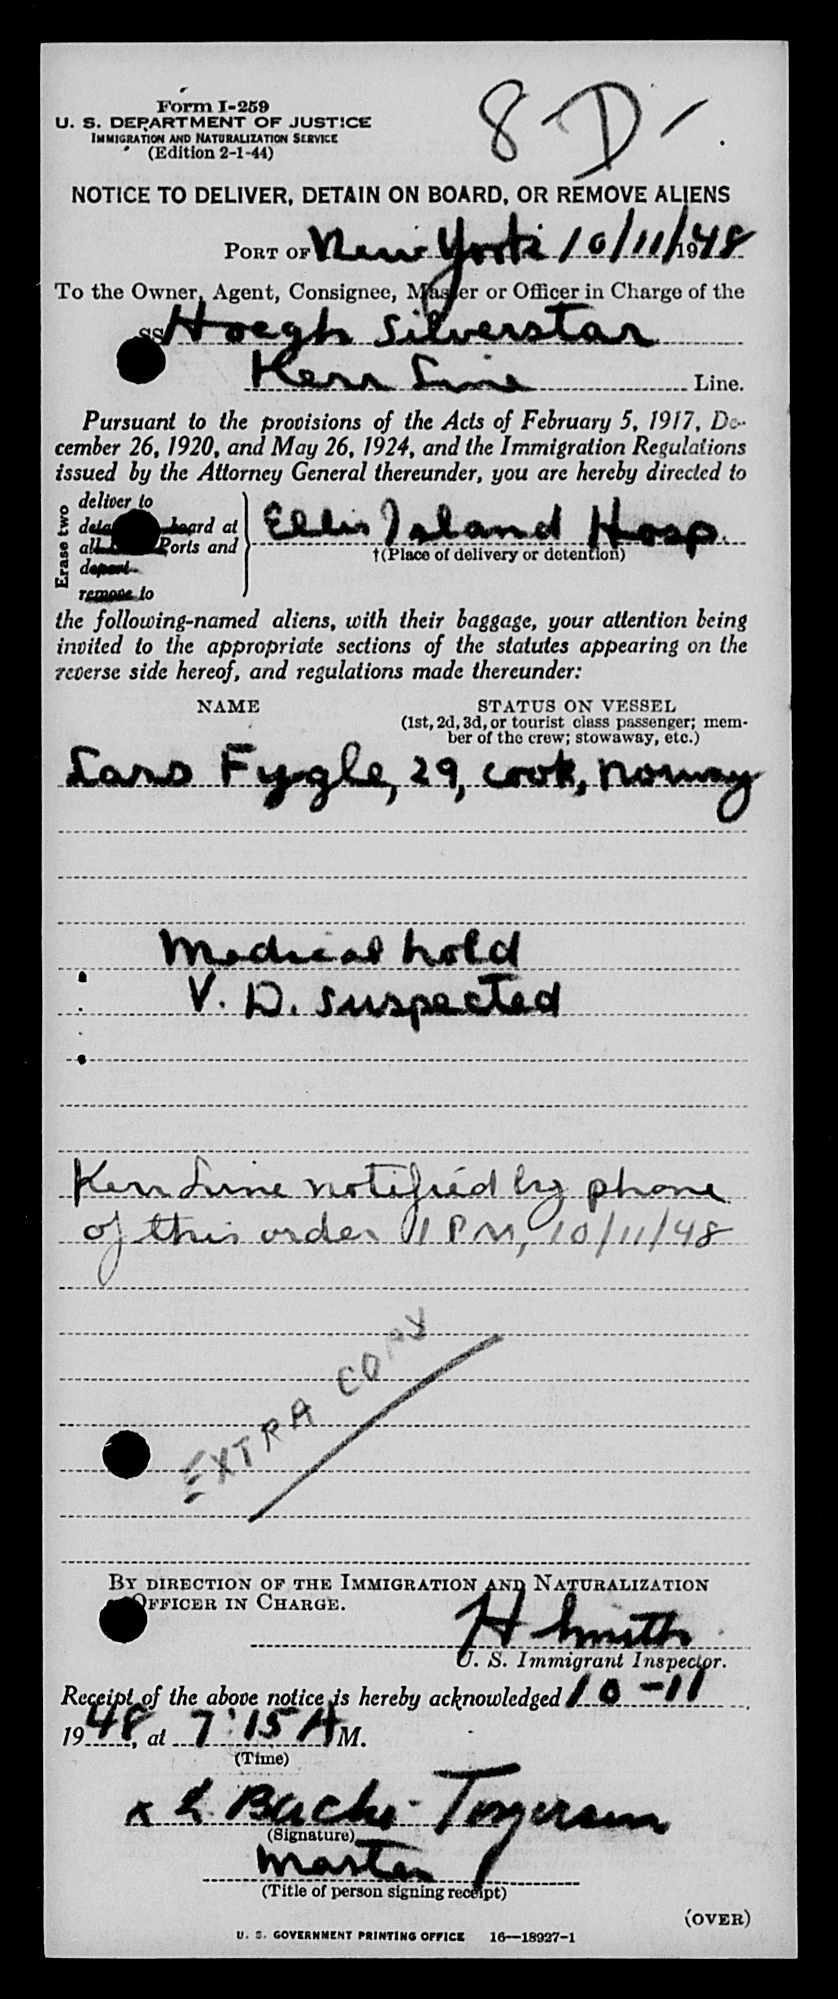 8-D-
Form I-259
U. S. DEPARTMENT OF JUSTICE
IMMIGRATION AND NATURALIZATION SERVICE
(Edition 2-1-44)
NOTICE TO DELIVER, DETAIN ON BOARD, OR REMOVE ALIENS
PORT OF New York 10/11/1948
To the Owner, Agent, Consignee, Master or Officer in Charge of the
SS Hoegh Silverstar
Kerr Line Line.
Pursuant to the provisions of the Acts of February 5, 1917, De-
cember 26, 1920, and May 26, 1924, and the Immigration Regulations
issued by the Attorney General thereunder, you are hereby directed to
Erase two
deliver to
board at
Ports and
deport
remove to
Ellis Island Hosp.
†(Place of delivery or detention)
the following-named aliens, with their baggage, your attention being
invited to the appropriate sections of the statutes appearing on the
reverse side hereof, and regulations made thereunder:
NAME STATUS ON VESSEL
(1st, 2d, 3d, or tourist class passenger; mem-
ber of the crew; stowaway, etc.)
Lars Fygle, 29, cook, Norway
Medical hold
V. D. suspected
Kerr Line notified by phone
of this order 1 PM, 10/11/48
EXTRA COPY
BY DIRECTION OF THE IMMIGRATION AND NATURALIZATION
OFFICER IN CHARGE.
H Smith
U. S. Immigrant Inspector.
Receipt of the above notice is hereby acknowledged 10-11
1948, at 7:15 A M.
(Time)
x L Bache-Torgersen
(Signature)
Master
(Title of person signing receipt)
(OVER)
U. S. GOVERNMENT PRINTING OFFICE 16—18927-1